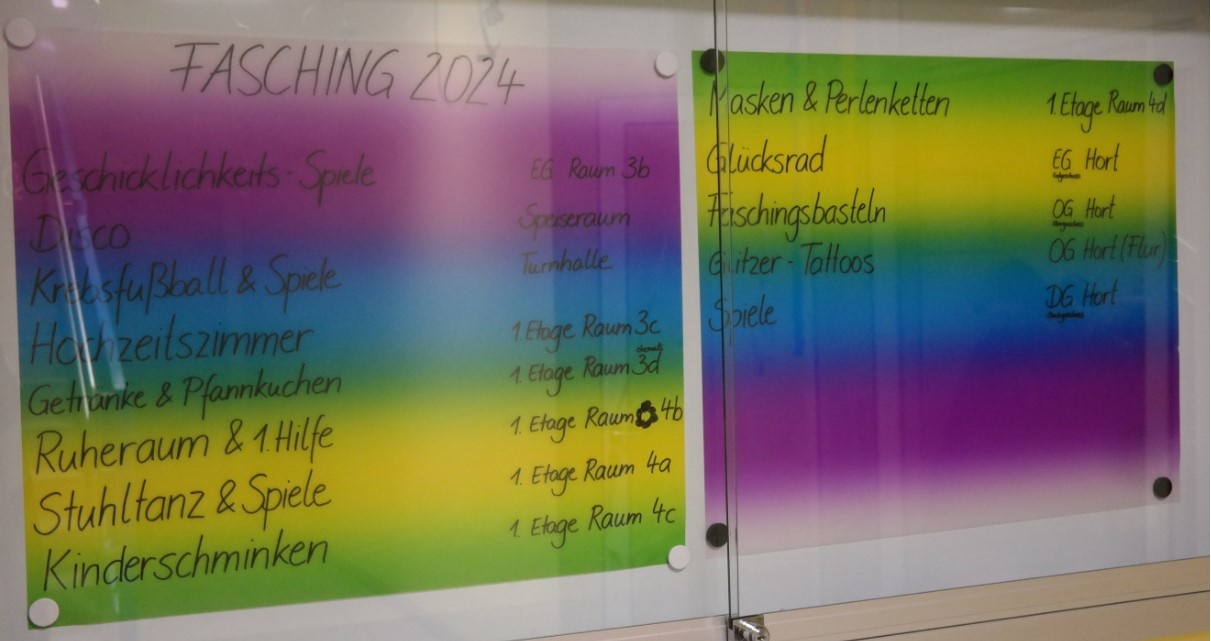 FASCHING 2024
Geschicklichkeits-Spiele EG Raum 3b
Disco Speiseraum
Krebsfußball & Spiele Turnhalle
Hochzeitszimmer 1. Etage Raum 3c
Getränke & Pfannkuchen 1. Etage Raum ehemals 3d
Ruheraum & 1. Hilfe 1. Etage Raum 4b
Stuhltanz & Spiele 1. Etage Raum 4a
Kinderschminken 1. Etage Raum 4c
Masken & Perlenketten 1. Etage Raum 4d
Glücksrad EG Hort
Erdgeschoss
Faschingsbasteln OG Hort
Obergeschoss
Glitzer-Tattoos OG Hort (Flur)
Spiele DG Hort
Dachgeschoss